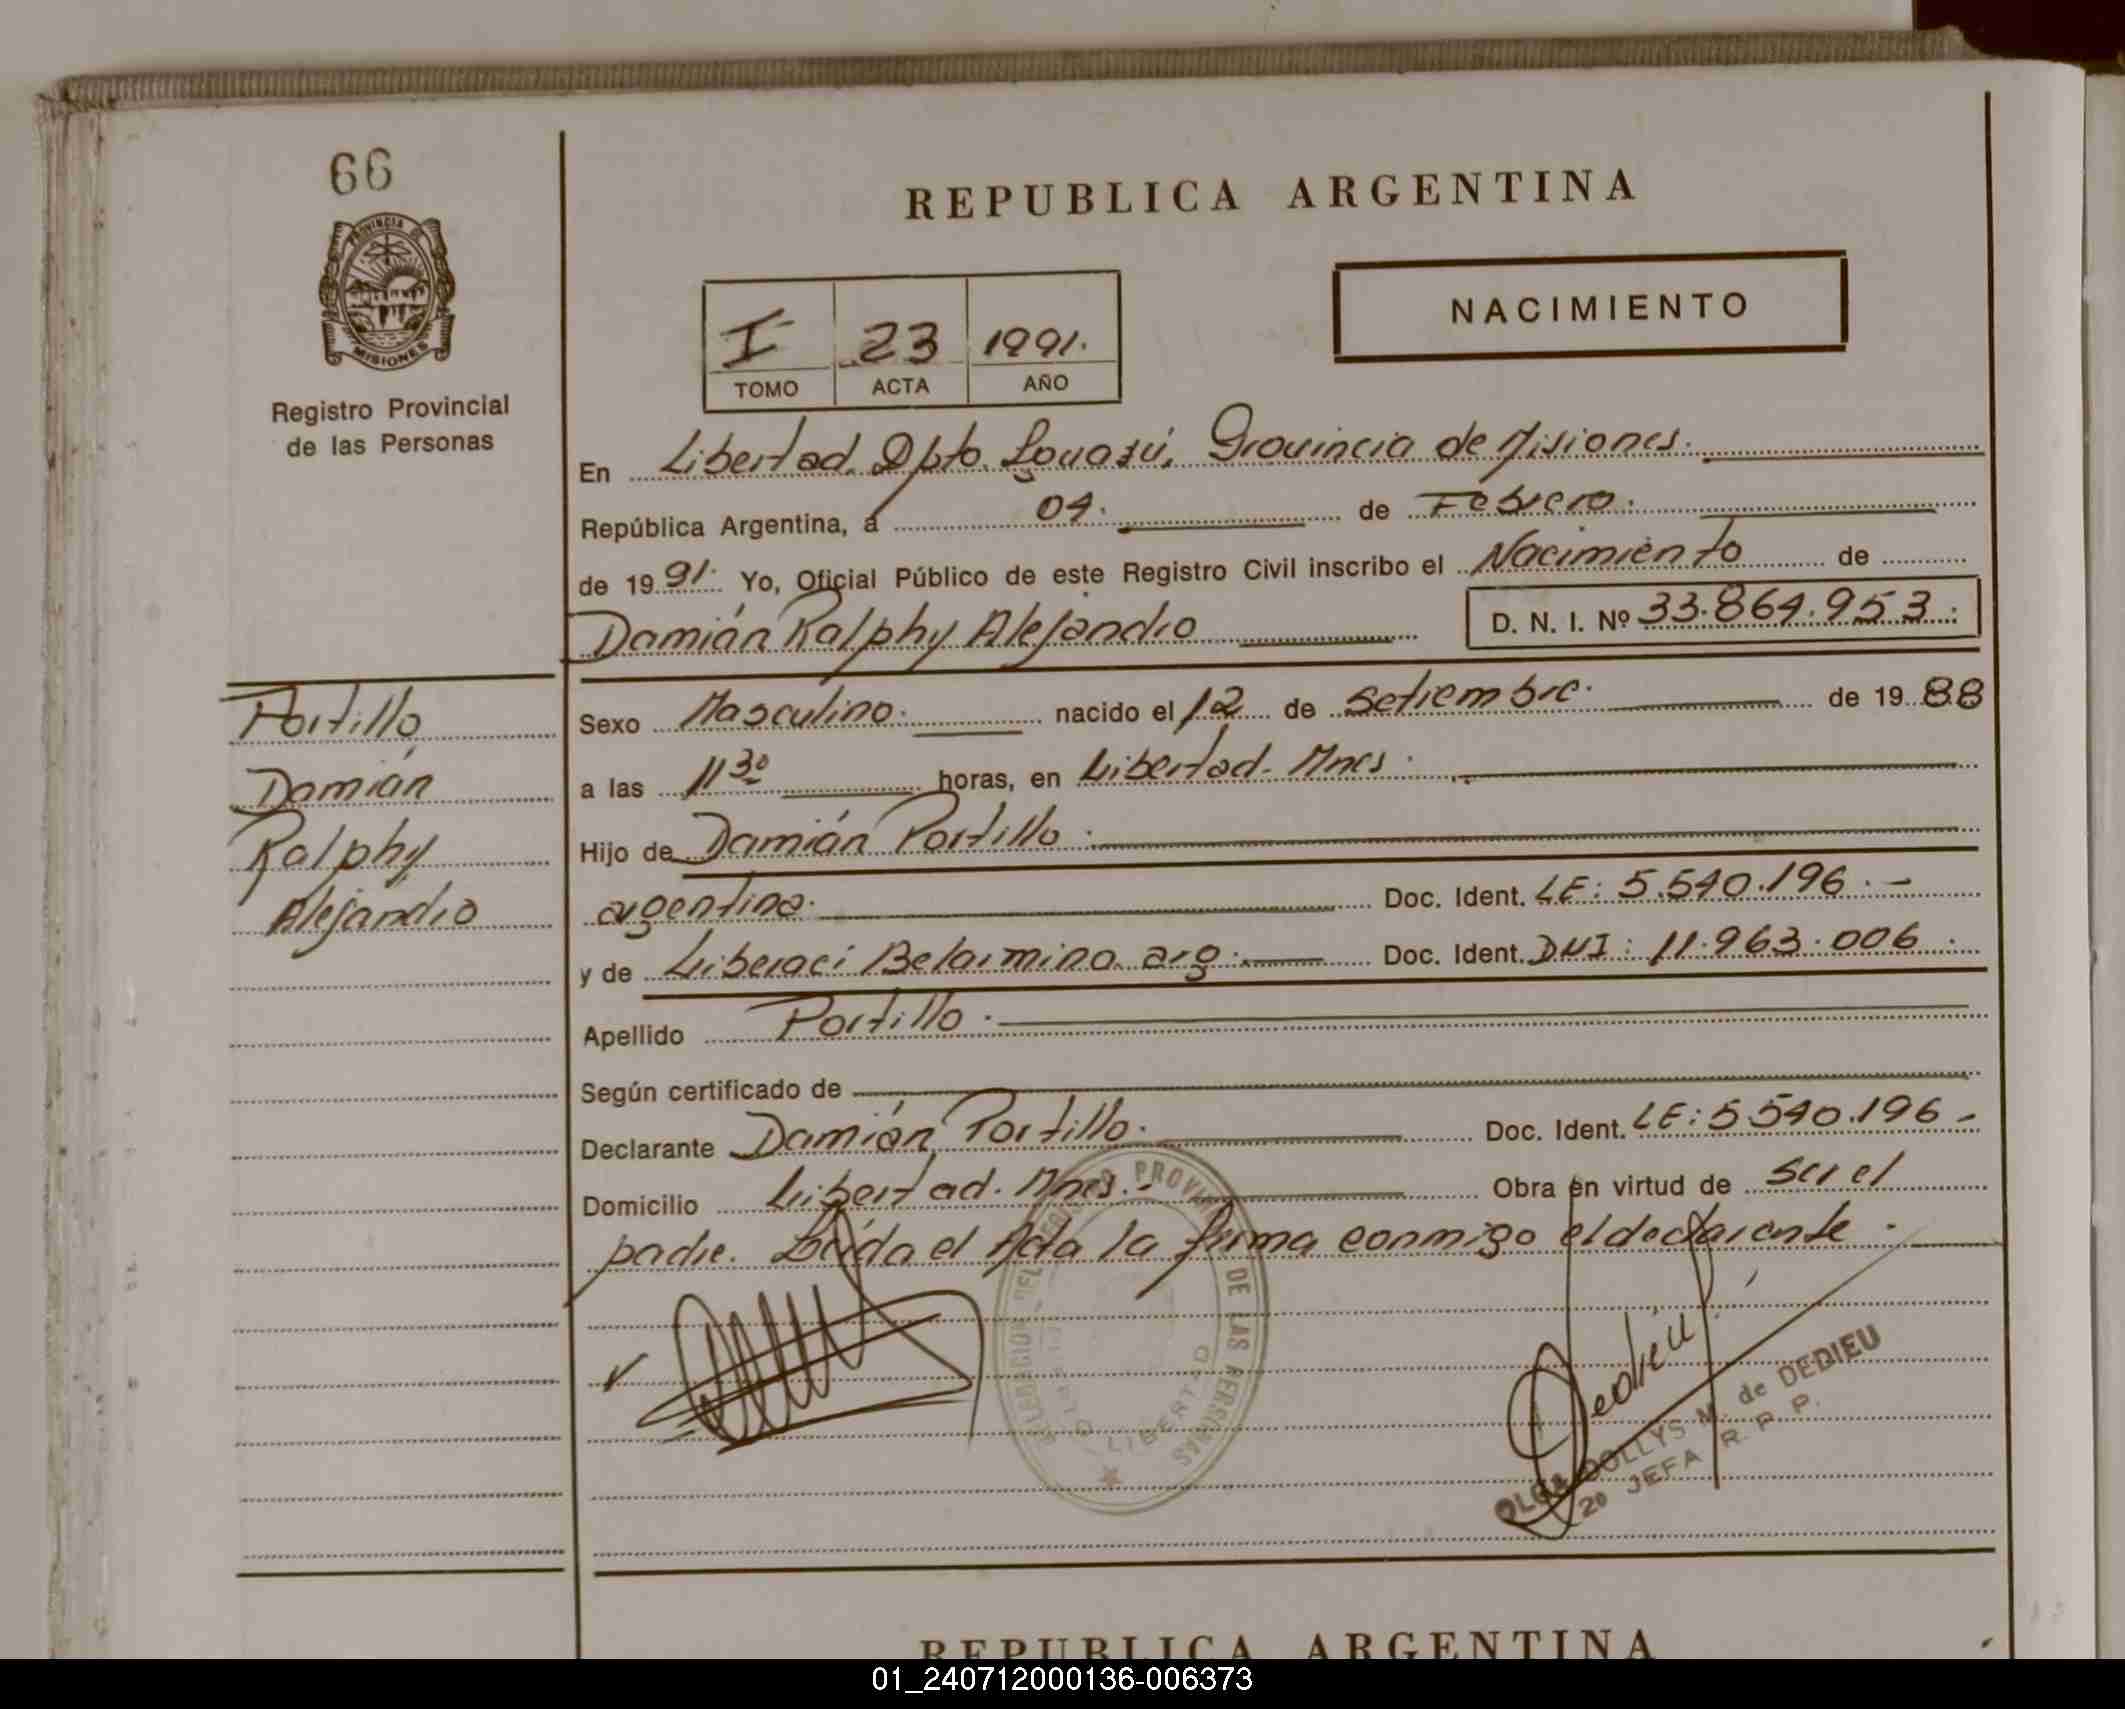 66
REPUBLICA ARGENTINA
PROVINCIA DE
MISIONES
Registro Provincial
de las Personas
NACIMIENTO
I 23 1991.
TOMO ACTA AÑO
En Libertad, Dpto. Iguazú, Provincia de Misiones.
República Argentina, a 04. de Febrero.
de 1991. Yo, Oficial Público de este Registro Civil inscribo el Nacimiento de
Damián Ralphy Alejandro D. N. I. Nº 33.864.953.
Portillo
Damián
Ralphy
Alejandro
Sexo Masculino. nacido el 12 de Setiembre. de 1988
a las 11 30 horas, en Libertad. Mnes.
Hijo de Damián Portillo.
argentino. Doc. Ident. LE: 5.540.196.-
y de Liberaci Belarmina arg. Doc. Ident. DUI: 11.963.006.
Apellido Portillo.
Según certificado de
Declarante Damián Portillo. Doc. Ident. LE: 5540.196-
Domicilio Libertad. Mnes.- Obra en virtud de ser el
padre. Leída el Acta la firma conmigo el declarante.
DELEGACION DEL REGISTRO PROVINCIAL DE LAS PERSONAS
LIBERTAD
Dedieu
OLGA DOLLYS M. de DEDIEU
2º JEFA R. P. P.
REPUBLICA ARGENTINA
01_240712000136-006373